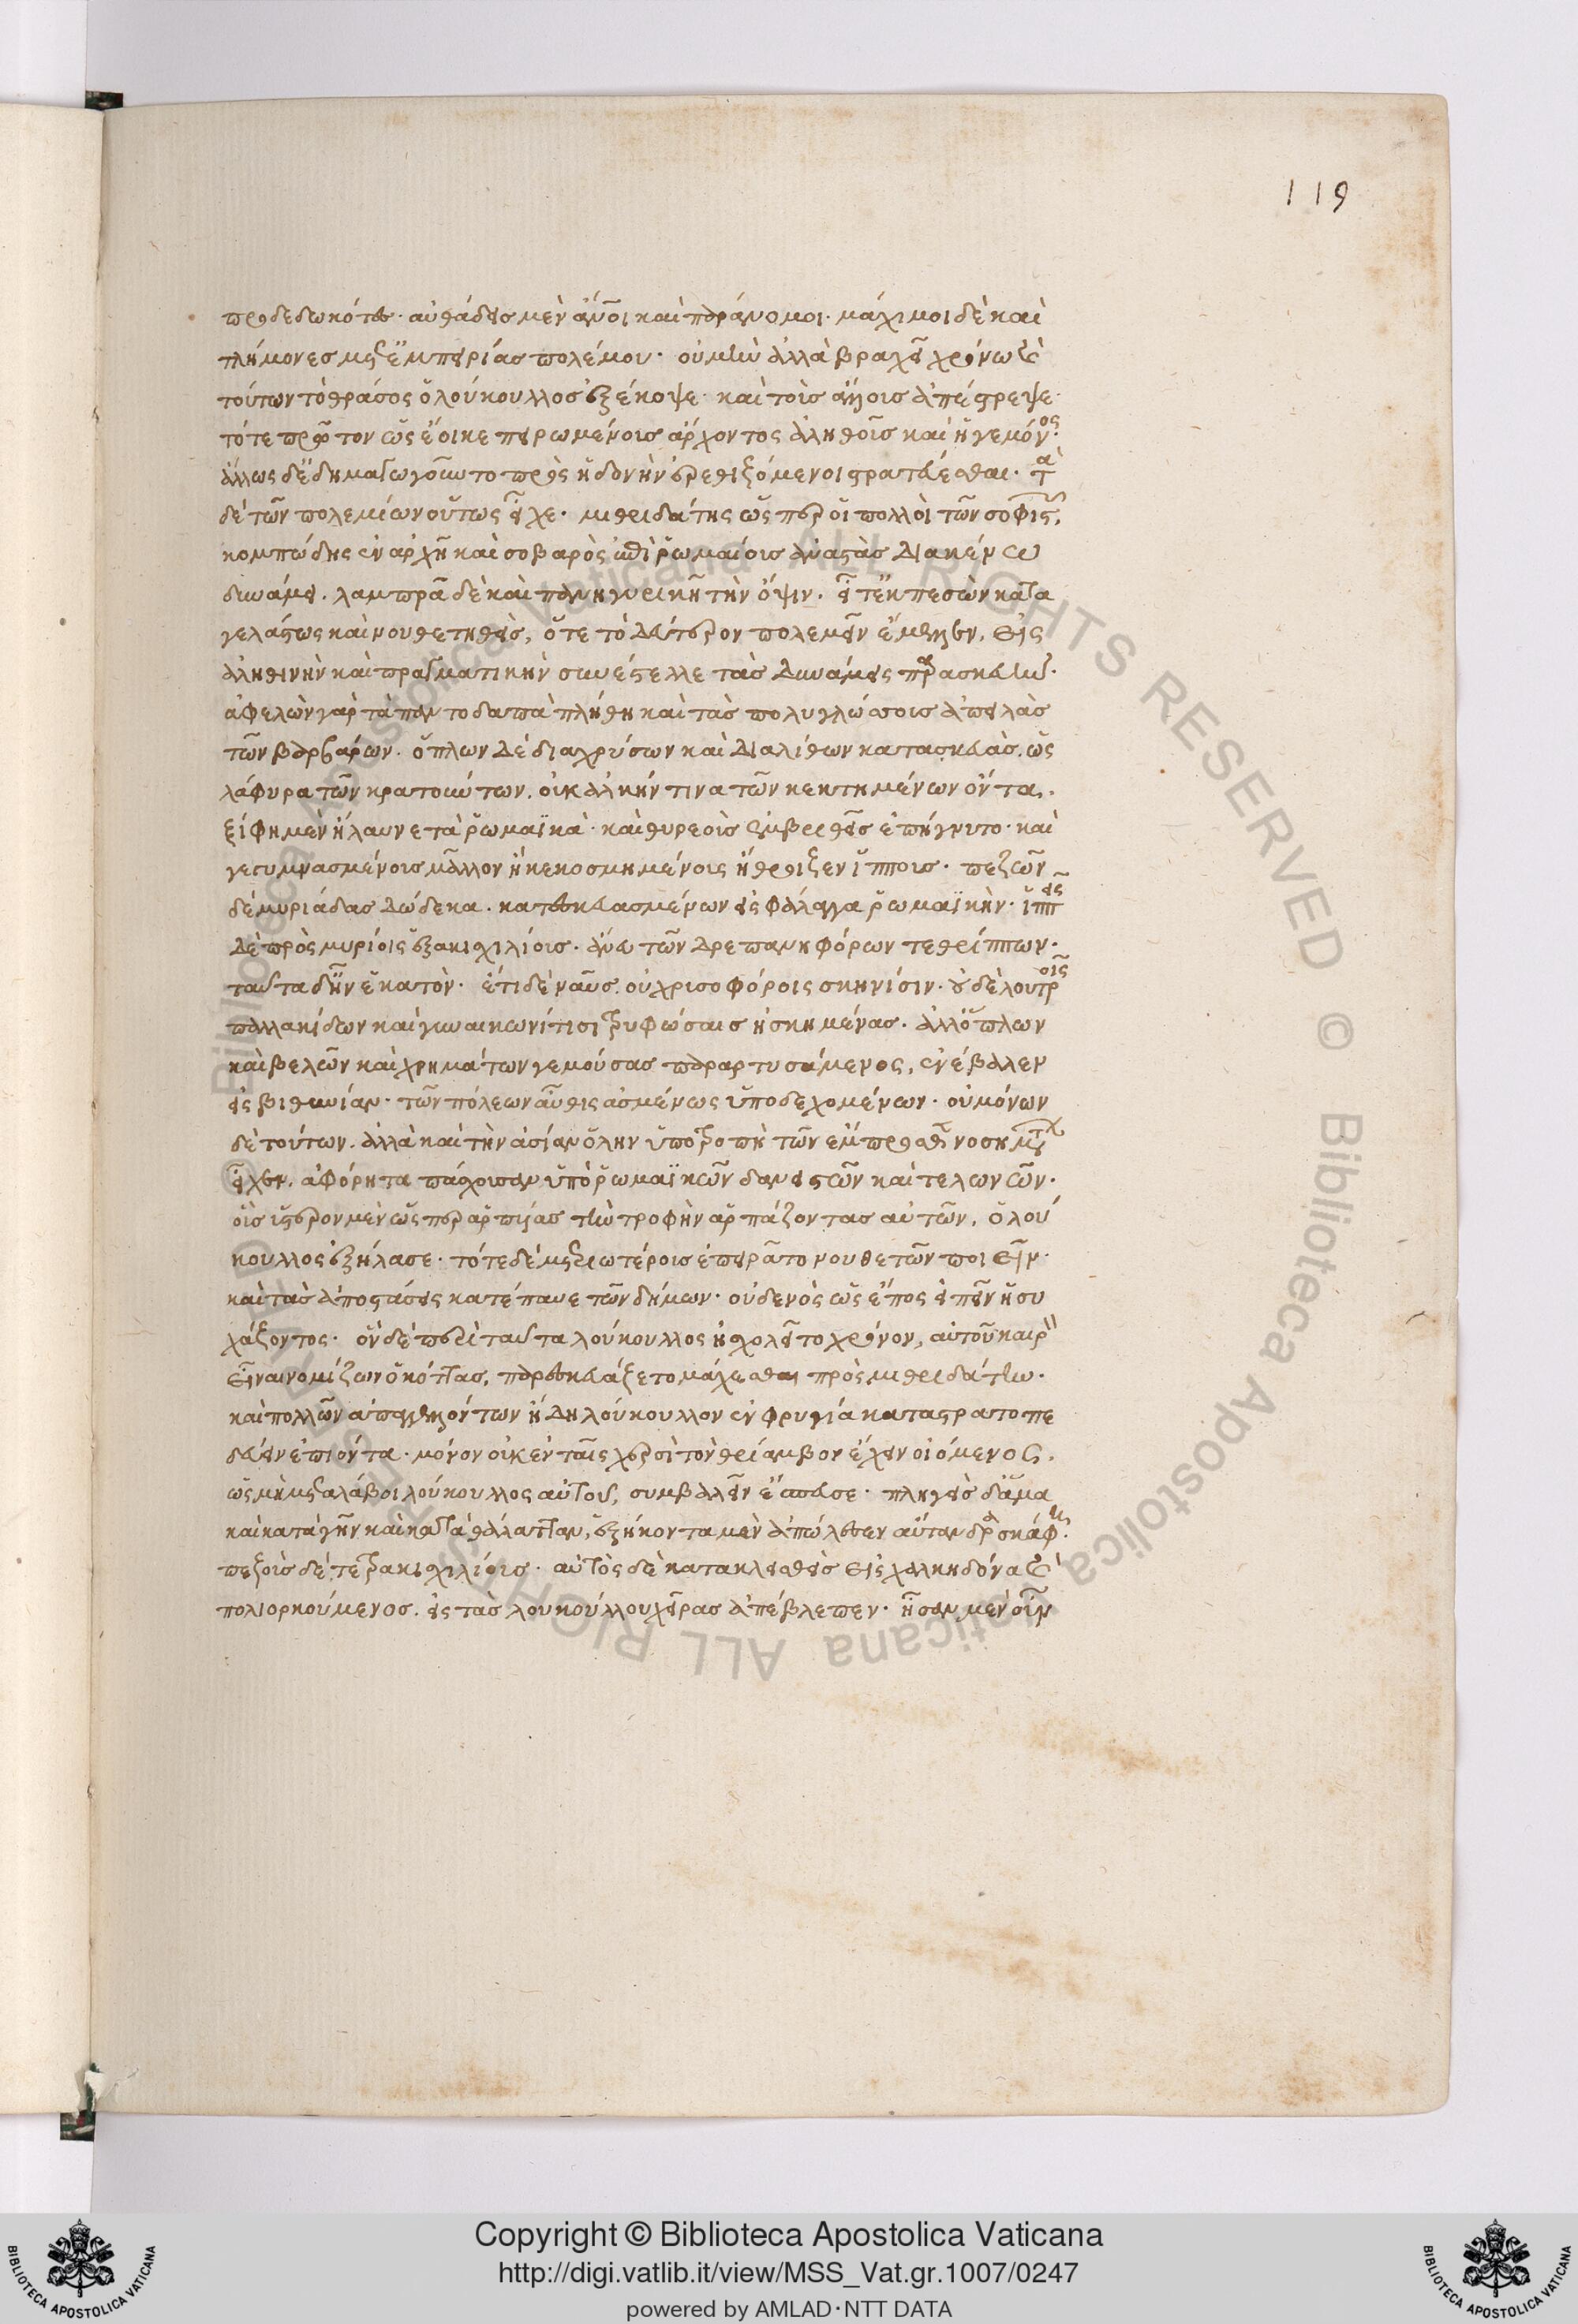 119
προδεδωκότες· αὐθάδεις μὲν ἄνοι καὶ παράνομοι· μάχιμοι δὲ καὶ
τλήμονες μετ' ἐμπειρίας πολέμου· οὐ μὴν ἀλλὰ βραχεῖ χρόνω καὶ
τούτων τὸ θράσος ὁ λούκουλλος ἐξέκοψε· καὶ τοὺς ἄλλους ἐπέστρεψε·
τότε πρῶτον ὡς ἔοικε πειρωμένους ἄρχοντος ἀληθοῦς καὶ ἡγεμόνος·
ἄλλως δὲ ἐδημαγωγοῦντο πρὸς ἡδονὴν ἐθιζόμενοι στρατεύεσθαι· τὰ
δὲ τῶν πολεμίων οὕτως εἶχε· μιθριδάτης ὥσπερ οἱ πολλοὶ τῶν σοφιστῶν,
κομπώδης ἐν ἀρχῆ καὶ σοβαρὸς ἐπὶ ῥωμαίους ἀναστὰς διακένω
δυνάμει· λαμπρᾶ δὲ καὶ πανηγυρικῆ τὴν ὄψιν· εἶτ' ἐκπεσὼν κατα
γελάστως καὶ νουθετηθεὶς, ὅτε τὸ δεύτερον πολεμεῖν ἔμελλεν, εἰς
ἀληθινὴν καὶ πραγματικὴν συνέστελλε τὰς δυνάμεις παρασκευήν·
ἀφελὼν γὰρ τὰ παντοδαπὰ πλήθη καὶ τὰς πολυγλώσσους ἀπειλὰς
τῶν βαρβάρων· ὅπλων δὲ διαχρύσων καὶ διαλίθων κατασκευὰς, ὡς
λάφυρα τῶν κρατούντων, οὐκ ἀλκήν τινα τῶν κεκτημένων ὄντα,
ξίφη μὲν ἤλαυνε τὰ ῥωμαϊκὰ· καὶ θυρεοὺς ἐμβριθεῖς ἐπήγνυτο· καὶ
γεγυμνασμένους μᾶλλον ἢ κεκοσμημένους ἤθροιζεν ἵππους· πεζῶν
δὲ μυριάδας δώδεκα· κατεσκευασμένων εἰς φάλαγγα ῥωμαϊκὴν· ἱππεῖς
δὲ πρὸς μυρίοις ἑξακισχιλίους· ἄνευ τῶν δρεπανηφόρων τεθρίππων·
ταῦτα δ' ἦν ἑκατὸν· ἔτι δὲ ναῦς, οὐ χρυσορόφοις σκηνίσιν· οὐδὲ λουτροῖς
παλλακίδων καὶ γυναικωνίτισι τρυφώσαις ἠσκημένας· ἀλλ' ὅπλων
καὶ βελῶν καὶ χρημάτων γεμούσας παραρτυσάμενος, ἐνέβαλεν
εἰς βιθυνίαν· τῶν πόλεων αὖθις ἀσμένως ὑποδεχομένων· οὐ μόνων
δὲ τούτων, ἀλλὰ καὶ τὴν ἀσίαν ὅλην ὑποτροπὴ τῶν ἔμπροσθεν νοσημάτων
εἶχεν, ἀφόρητα πάσχουσαν ὑπὸ ῥωμαϊκῶν δανειστῶν καὶ τελωνῶν·
οὓς ὕστερον μὲν ὥσπερ ἁρπυίας τὴν τροφὴν ἁρπάζοντας αὐτῶν, ὁ λού
κουλλος ἐξήλασε· τότε δὲ μετριωτέρους ἐπειρᾶτο νουθετῶν ποιεῖν·
καὶ τὰς ἀποστάσεις κατέπαυε τῶν δήμων· οὐδενὸς ὡς ἔπος εἰπεῖν ἡσυ
χάζοντος· ὃν δὲ περὶ ταῦτα λούκουλλος ἠσχολεῖτο χρόνον, αὑτοῦ καιρὸν
εἶναι νομίζων ὁ κόττας, παρεσκευάζετο μάχεσθαι πρὸς μιθριδάτην·
καὶ πολλῶν ἀπαγγελλόντων ἤδη λούκουλλον ἐν φρυγία καταστρατοπε
δεύειν ἐπιόντα· μόνον οὐκ ἐν ταῖς χερσὶ τὸν θρίαμβον ἔχειν οἰόμενος,
ὡς μὴ μεταλάβοι λούκουλλος αὐτοῦ, συμβαλεῖν ἔσπευσε· πληγεὶς δ' ἅμα
καὶ κατὰ γῆν καὶ κατὰ θάλατταν, ἑξήκοντα μὲν ἀπώλεσεν αὔτανδρα σκάφη·
πεζοὺς δὲ τετρακισχιλίους· αὐτὸς δὲ κατακλεισθεὶς εἰς χαλκηδόνα καὶ
πολιορκούμενος, εἰς τὰς λουκούλλου χεῖρας ἀπέβλεπεν· ἦσαν μὲν οὖν
Copyright © Biblioteca Apostolica Vaticana
http://digi.vatlib.it/view/MSS_Vat.gr.1007/0247
powered by AMLAD·NTT DATA
BIBLIOTECA APOSTOLICA VATICANA
BIBLIOTECA APOSTOLICA VATICANA
Biblioteca Apostolica Vaticana ALL RIGHTS RESERVED © Biblioteca Apostolica Vaticana ALL RIGHTS RESERVED ©